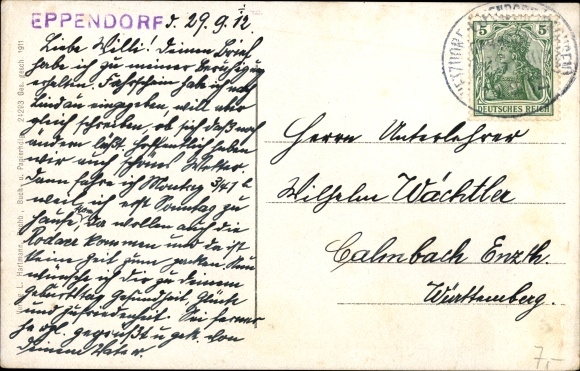 EPPENDORF d. 29.9.12.
Liebe Willi! Deinen Brief
habe ich zu meiner Beruhigung
erhalten. Fahrschein habe ich nach
Lindau eingegeben, will aber
gleich schreiben, ob sich daß noch
ändern läßt. Hoffentlich haben
wir auch schönes Wetter.
Dann fahre ich Montag 3/4 1
weil ich erst Sonntag zu
Hause, da wollen auch die
kommen und da ist
keine Zeit zum packen. Nun
wünsche ich dir zu deinem
Geburtstag Gesundheit, Glück
und Zufriedenheit. Sei ferner
hzl. gegrüßt u. gek. von
deinem Vater.
Herrn Unterlehrer
Wilhelm Wächtler
Calmbach Enzth.
Württemberg.
5 5
DEUTSCHES REICH
Hartmann, Buch- u. Papierhdlg. 24293 Ges. gesch. 1911
7,-